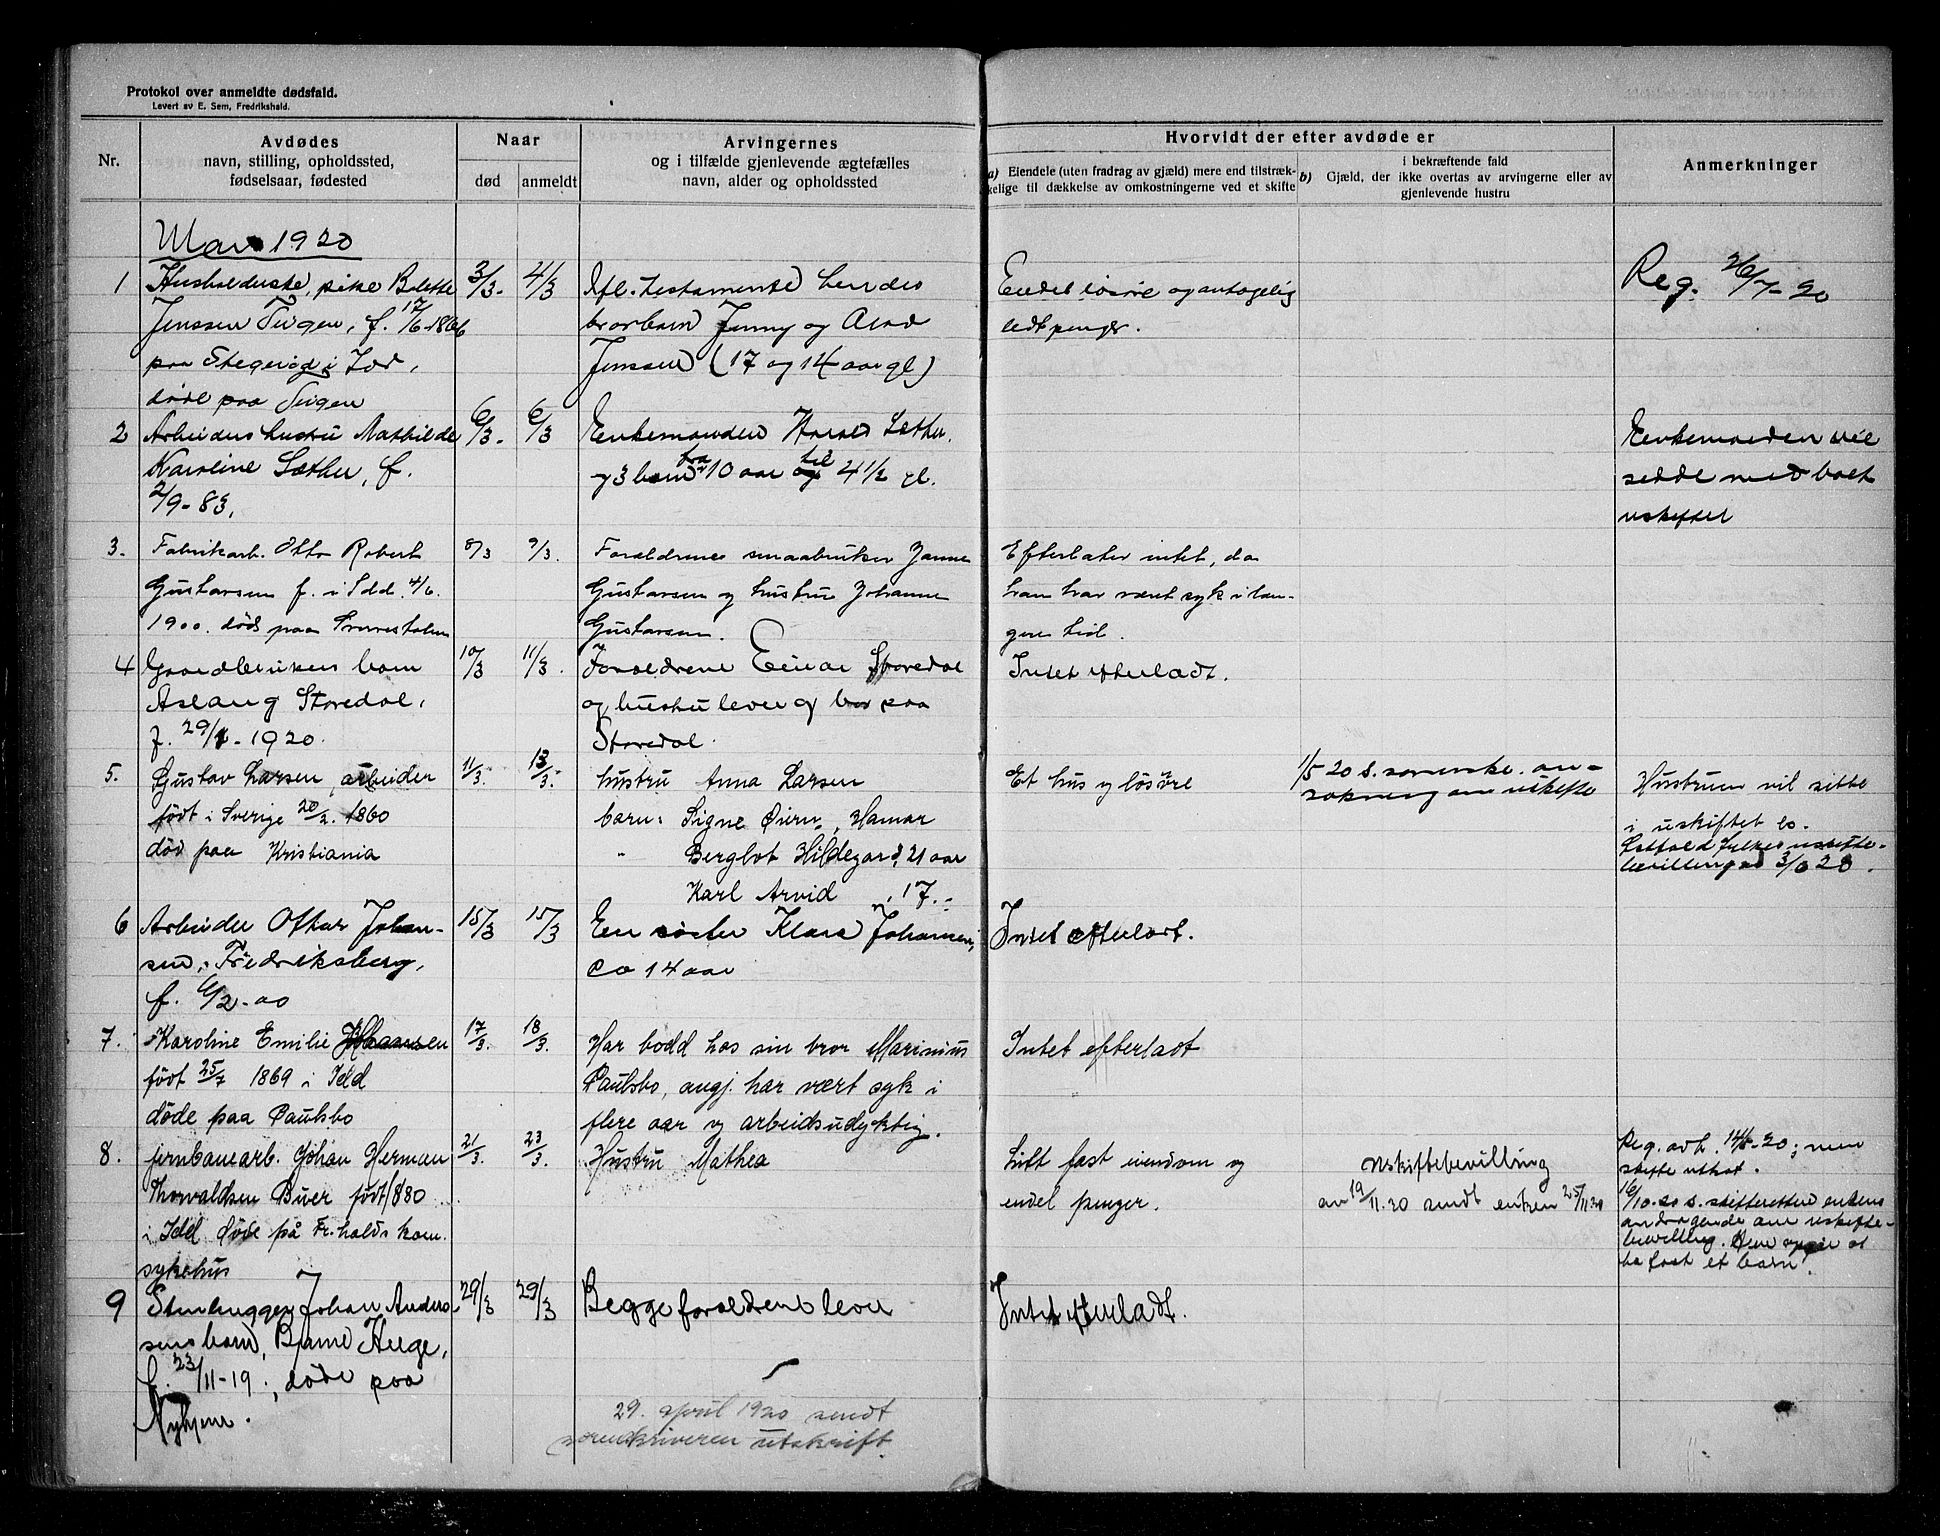 Protokol over anmeldte dødsfald.
Levert av E. Sem, Fredrikshald.
Nr.
Avdødes
navn, stilling, opholdssted,
fødselsaar, fødested
Naar
død
anmeldt
Arvingernes
og i tilfælde gjenlevende ægtefælles
navn, alder og opholdssted
Hvorvidt der efter avdøde er
a) Eiendele (uten fradrag av gjæld) mere end tilstræk-
kelige til dækkelse av omkostningerne ved et skifte
i bekræftende fald
b) Gjæld, der ikke overtas av arvingerne eller av
gjenlevende hustru
Anmerkninger
Mars 1920
1
Husholderske, pike Bolette
Jenssen Tirgen, f. 17/6-1866
paa Stegerød i Idd,
døde paa Tirgen
3/3-
4/3
Ifl. testamente hendes
brorbarn Jenny og
Jenssen (17 og 14 aar gl)
Endel løsøre og antagelig
lidt penger.
Reg. 26/7-20
2
Arbeiders hustru Mathilde
Karoline Sæther, f.
2/9-83.
6/3-
6/3
Enkemanden Harald Sæther,
og 3 barn fra 10 aar og til 4 1/2 gl.
Enkemanden vil
sidde med boet
uskiftet
3.
Fabrikarb. Otto Robert
Gustavsen f. i Idd. 4/6.
1900. død paa
8/3
9/3.
Forældrene smaabruker Janne
Gustavsen og hustru Johanne
Gustavsen.
Efterlater intet, da
han har været syk i læn-
gere tid.
4
Gaardbrukers barn
Aslaug Storedal,
f. 29/1-1920.
10/3
11/3.
Forældrene Einar Storedal
og hustru lever og bor paa
Storedal.
Intet efterladt.
5.
Gustav Larsen, arbeider
født i Sverige 20/2. 1860
død paa Kristiania
11/3.
13/3.
hustru Anna Larsen
barn: Signe Øiern, Hamar
" Bergliot Hildegard, 21 aar
Karl Arvid " 17. "
Et hus og løsøre
1/5 20 s. sorenskr. an-
søkning om uskifte
Hustruen vil sitte
i uskiftet bo.
Østfold fylkes uskifte-
bevilling av 3/6 20.
6
Arbeider Oskar Johan-
sen, Fredriksberg,
f. 6/2-00
15/3
15/3
En søster Klara Johansen,
ca 14 aar
Intet efterladt.
7.
Karoline Emilie
født 25/7 1869 i Idd
døde paa Paulsbo
17/3.
18/3.
Har bodd hos sin bror Marinius
Paulsbo, angj. har vært syk i
flere aar og arbeidsudyktig.
Intet efterladt
8.
jernbanearb. Johan Herman
Thorvaldsen Buer født 1880
i Idd døde på Fr.halds kom.
sykehus
21/3.
23/3.
Hustru Mathea
Litt fast eiendom og
endel penger.
Uskiftebevilling
av 19/11.20 sendt enken 25/11.20
Reg. avh. 14/6-20; men
skifte utsat.
16/10.20 s. skifteretten enkens
andragende om uskifte-
bevilling. Hun opgir at
ha faat et barn.
9
Stenhugger Johan Anders-
sens barn, Bjarne Helge,
f. 23/11-19, døde paa
29/3
29/3
Begge forældrene lever
Intet efterladt.
29. april 1920 sendt
sorenskriveren utskrift.